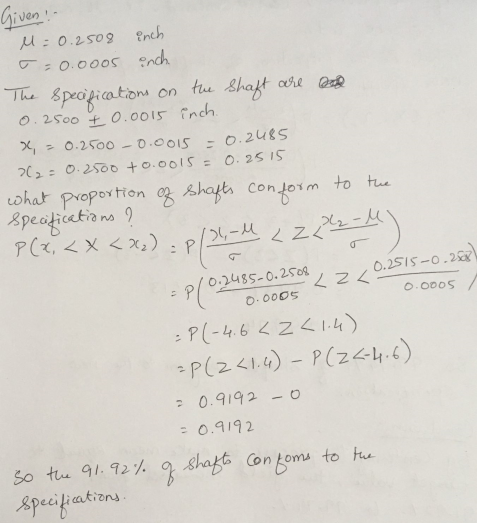 Given:-
μ = 0.2508 inch
σ = 0.0005 inch
The Specifications on the shaft are
0.2500 ± 0.0015 inch.
x₁ = 0.2500 - 0.0015 = 0.2485
x₂ = 0.2500 + 0.0015 = 0.2515
what proportion of shafts conform to the
specifications?
P(x₁ < X < x₂) = P(x₁-μ/σ < Z < x₂-μ/σ)
= P(0.2485-0.2508/0.0005 < Z < 0.2515-0.2508/0.0005)
= P(-4.6 < Z < 1.4)
= P(Z < 1.4) - P(Z < -4.6)
= 0.9192 - 0
= 0.9192
So the 91.92% of shafts conforms to the
specifications.